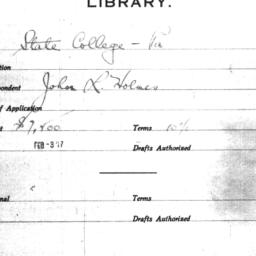 LIBRARY.
State College - Pa
tion
pondent John L. Holmes
of Application
t $7,400 Terms 10%
FEB -3 '17 Drafts Authorized
nal Terms
Drafts Authorized